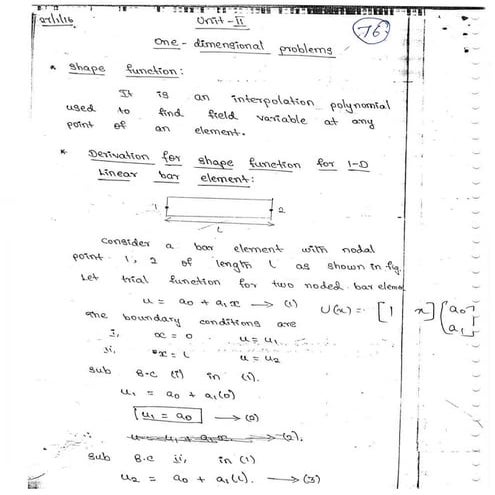 Unit-II
76
One-dimensional problems
* Shape function:
It is an interpolation polynomial
used to find field variable at any
point of an element.
* Derivation for shape function for 1-D
Linear bar element:
1 2
L
Consider a bar element with nodal
point 1, 2 of length L as shown in fig.
Let trial function for two noded bar eleme
u = a0 + a1x → (1) U(x) = [1 x] {a0 a1}
The boundary conditions are
i, x = 0 u = u1
ii, x = L u = u2
Sub B.C (i) in (1).
u1 = a0 + a1(0)
u1 = a0 → (2)
u = u1 + a1x → (2).
Sub B.C ii, in (1)
u2 = a0 + a1(L). → (3)